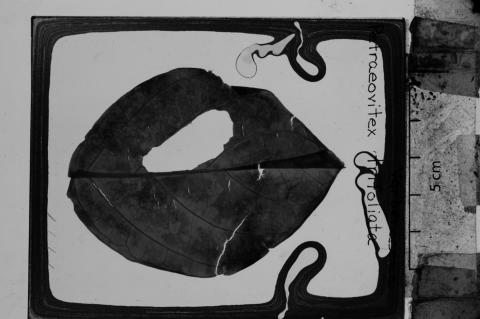 Petraeovitex trifoliata
5cm